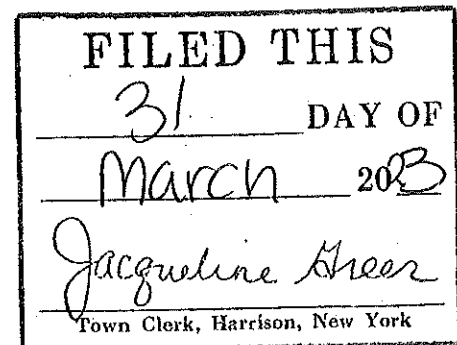 FILED THIS
31 DAY OF
March 2023
Jacqueline Greer
Town Clerk, Harrison, New York